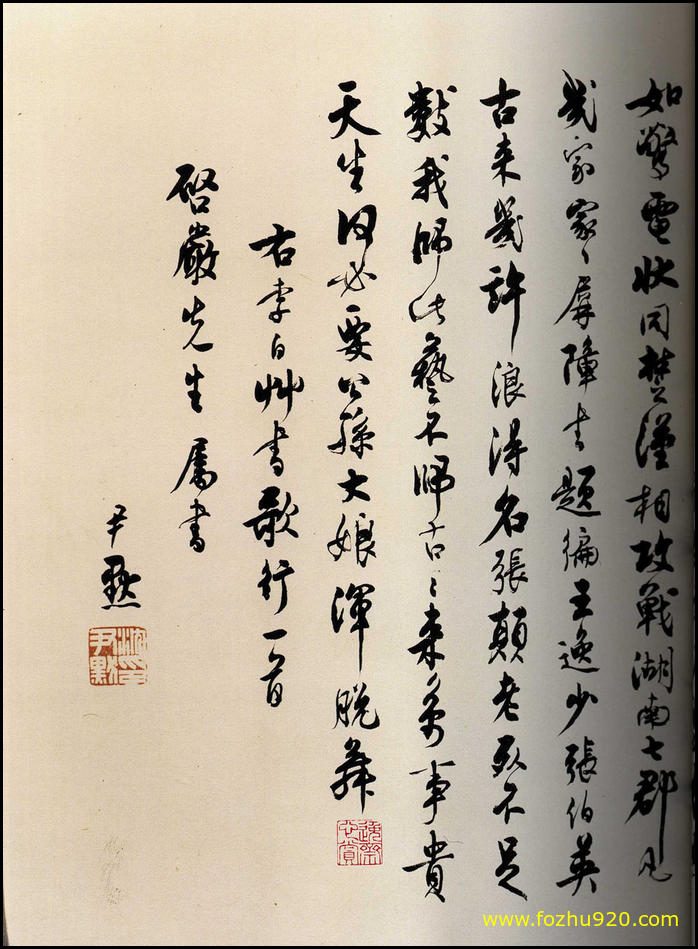 如驚電狀同楚漢相攻戰湖南七郡凡
幾家家〻屏障書題徧王逸少張伯英
古来幾許浪得名張顛老死不足
數我師此藝不師古〻来萬事貴
天生何必要公孫大娘渾脱舞
右李白艸書歌行一首
啓嚴先生屬書
尹默
沈尹默
www.fozhu920.com